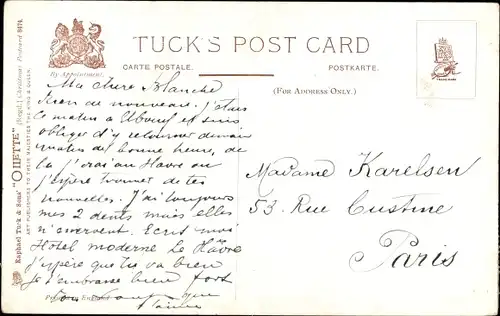 TUCK'S POST CARD
By Appointment.
CARTE POSTALE.
POSTKARTE.
(FOR ADDRESS ONLY.)
Raphael Tuck & Sons' "OILETTE" [Regd.] Postcard 8474.
ART PUBLISHERS TO THEIR MAJESTIES THE KING & QUEEN.
TRADE MARK
Ma chère Blanche
Rien de nouveau. J'étais
ce matin à Elbeuf et suis
obligé d'y retourner demain
matin de bonne heure, de
là j'irai au Havre où
j'espère trouver de tes
nouvelles. J'ai toujours
mes 2 dents mais elles
m'énervent. Ecris moi
Hôtel moderne Le Hâvre
j'espère que tu va bien
je t'embrasse bien fort
t'aime
Madame Karelsen
53, Rue Custine
Paris